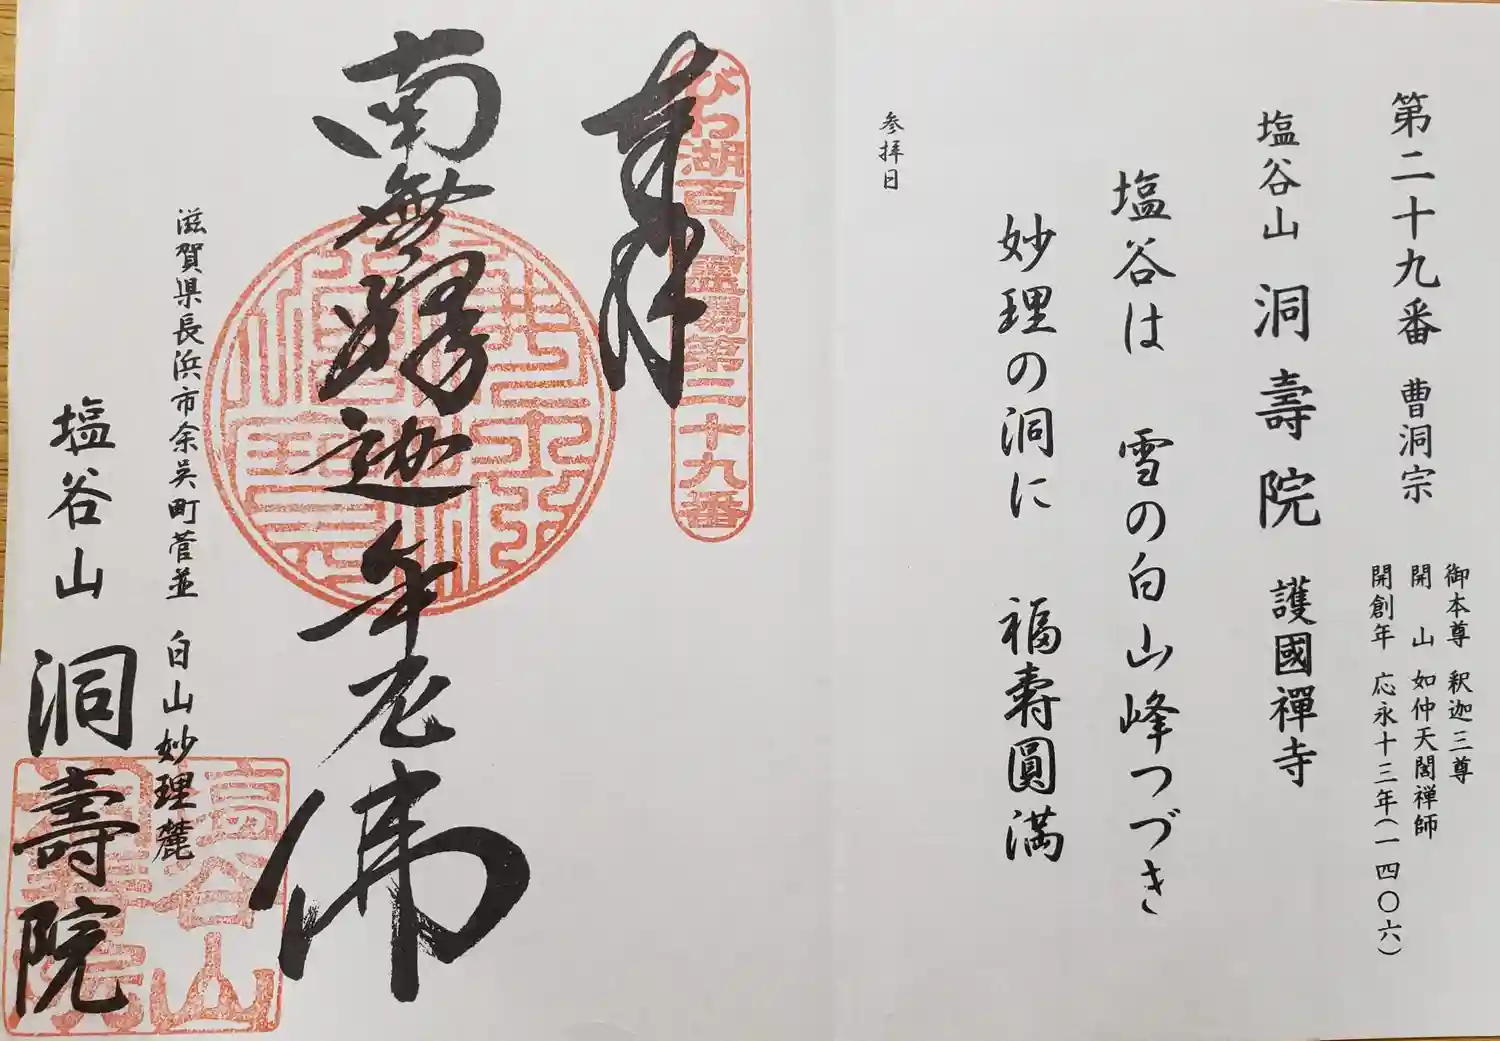 第二十九番 曹洞宗
御本尊 釈迦三尊
開 山 如仲天誾禅師
開創年 応永十三年(一四〇六)
塩谷山 洞壽院 護國禪寺
塩谷は 雪の白山峰つづき
妙理の洞に 福壽圓満
参拝日
奉拝
びわ湖百八霊場第二十九番
南無釋迦牟尼佛
滋賀県長浜市余呉町菅並 白山妙理麓
塩谷山 洞壽院
塩谷山
洞壽院